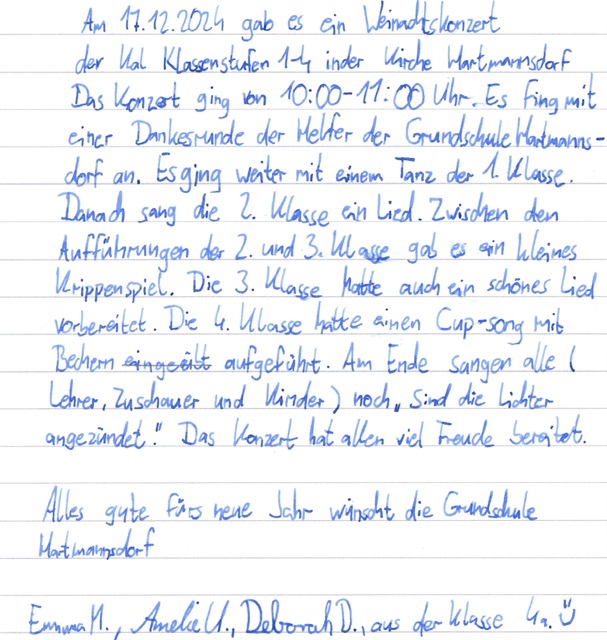 Am 17.12.2024 gab es ein Weinachtskonzert
der Kal Klassenstufen 1-4 inder Kirche Hartmannsdorf
Das Konzert ging von 10:00-11:00 Uhr. Es fing mit
einer Dankesrunde der Helfer der Grundschule Hartmanns-
dorf an. Es ging weiter mit einem Tanz der 1. Klasse.
Danach sang die 2. Klasse ein Lied. Zwischen den
Aufführungen der 2. und 3. Klasse gab es ein kleines
Krippenspiel. Die 3. Klasse hatte auch ein schönes Lied
vorbereitet. Die 4. Klasse hatte einen Cup-song mit
Bechern aufgeführt. Am Ende sangen alle (
Lehrer, Zuschauer und Kinder) noch „Sind die Lichter
angezündet." Das Konzert hat allen viel Freude bereitet.
Alles gute fürs neue Jahr wünscht die Grundschule
Hartmannsdorf
Emma M., Amelie U., Deborah D., aus der Klasse 4a. Ü